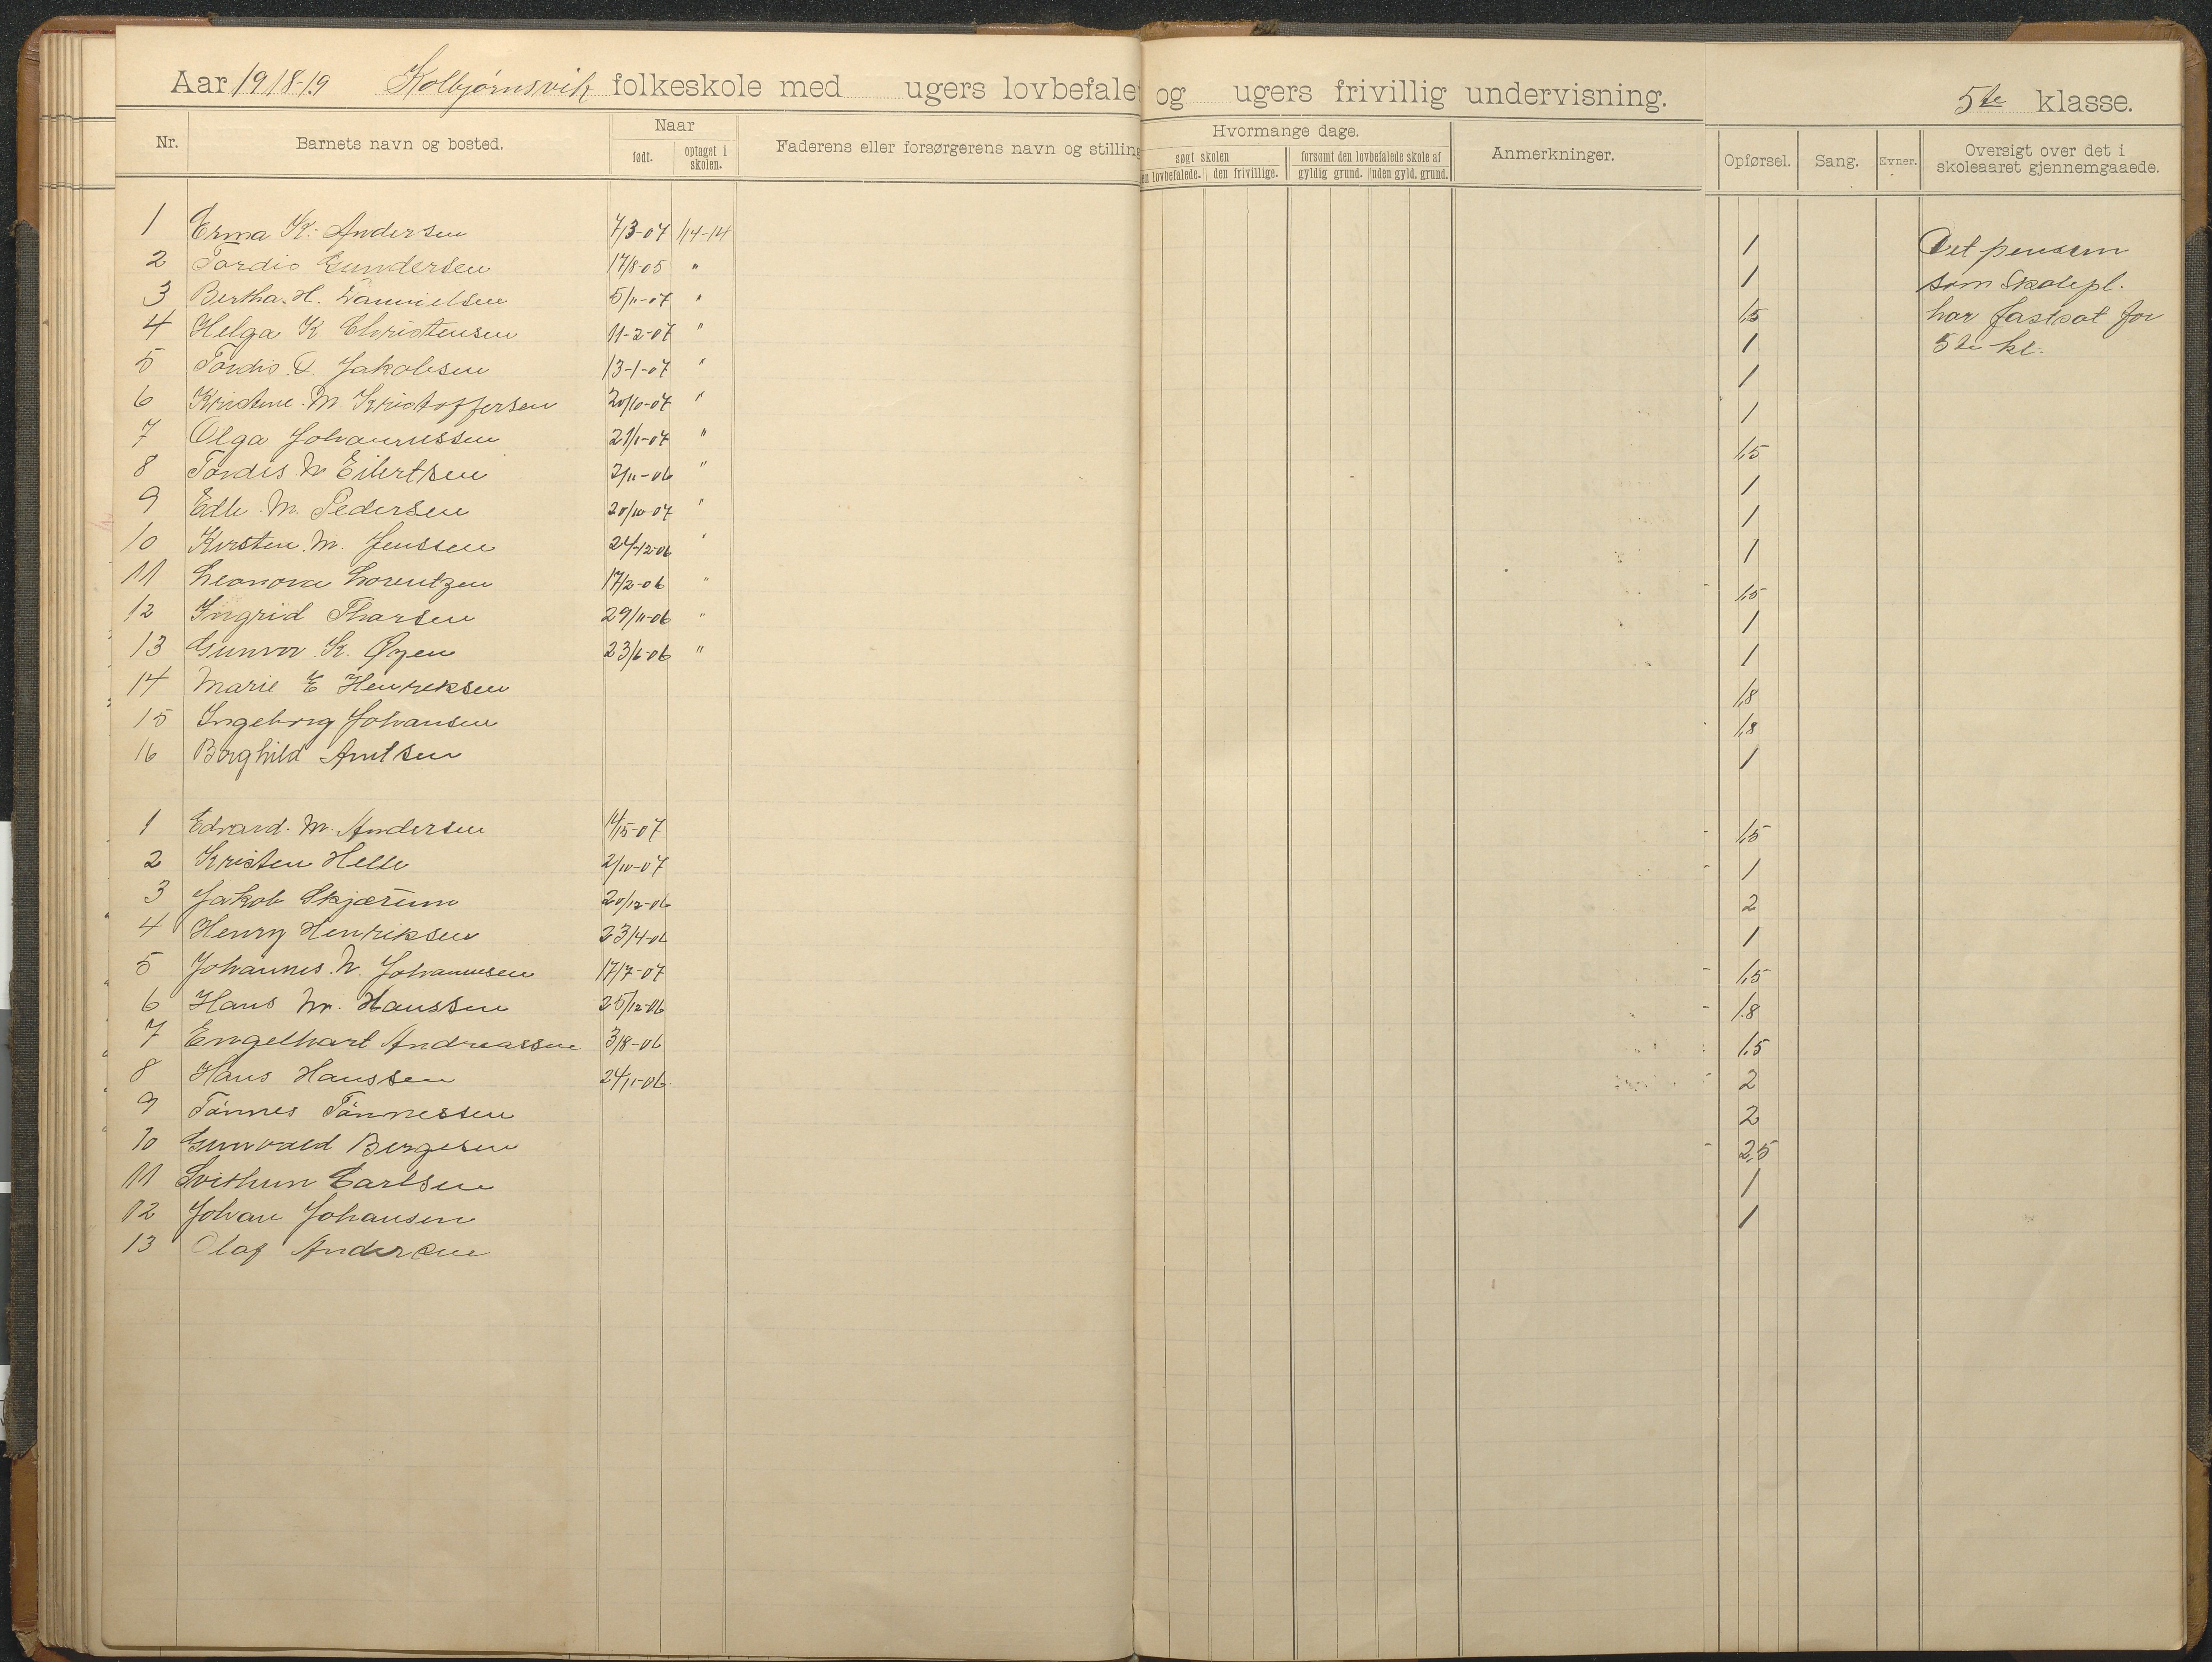 Aar 1918-19 Kolbjørnsvik folkeskole med ugers lovbefalet og ugers frivillig undervisning. 5te klasse.
Nr. Barnets navn og bosted. Naar født. optaget i skolen. Faderens eller forsørgerens navn og stilling Hvormange dage. søgt skolen en lovbefalede. den frivillige. forsømt den lovbefalede skole af gyldig grund. uden gyld. grund. Anmerkninger. Opførsel. Sang. Evner. Oversigt over det i skoleaaret gjennemgaaede.
1 Erma K. Andersen 7/3-07 1/4-14 1 Det pensum
2 Tordis Gundersen 17/8-05 " 1 som Skolepl.
3 Bertha. H. Dannielsen 5/11-07 " 1,5 har fastsat for
4 Helga K Christensen 11-2-07 " 1 5te kl.
5 Tordis O. Jakobsen 13-1-07 " 1
6 Kristine. M. Kristoffersen 20/10-07 " 1
7 Olga Johannessen 21/1-07 " 1,5
8 Tordis. N Eilertsen 2/11-06 " 1
9 Edle. M. Pedersen 20/10-07 " 1
10 Kirsten. M. Jenssen 24-12-06 " 1
11 Leonora Lorentzen 17/2-06 " 1,5
12 Ingrid Thorsen 29/11-06 " 1
13 Gunvor K. Øyen 23/6-06 " 1
14 Marie E Henriksen 1,8
15 Ingeborg Johansen 1,8
16 Borghild Arntsen 1
1 Edvard. M. Andersen 14/5-07 1,5
2 Kristen Helle 2/10-07 1
3 Jakob Skjærum 20/12-06 2
4 Henry Henriksen 23/4-06 1
5 Johannes. N. Johannesen 17/7-07 1,5
6 Hans M. Hanssen 25/12-06 1.8
7 Engelhart Andreassen 3/8-06 1.5
8 Hans Hanssen 24/11-06. 2
9 Tønnes Tønnessen 2
10 Gunvald Bergesen 2,5
11 Svithun Carlsen 1
12 Johan Johansen 1
13 Olaf Andersen